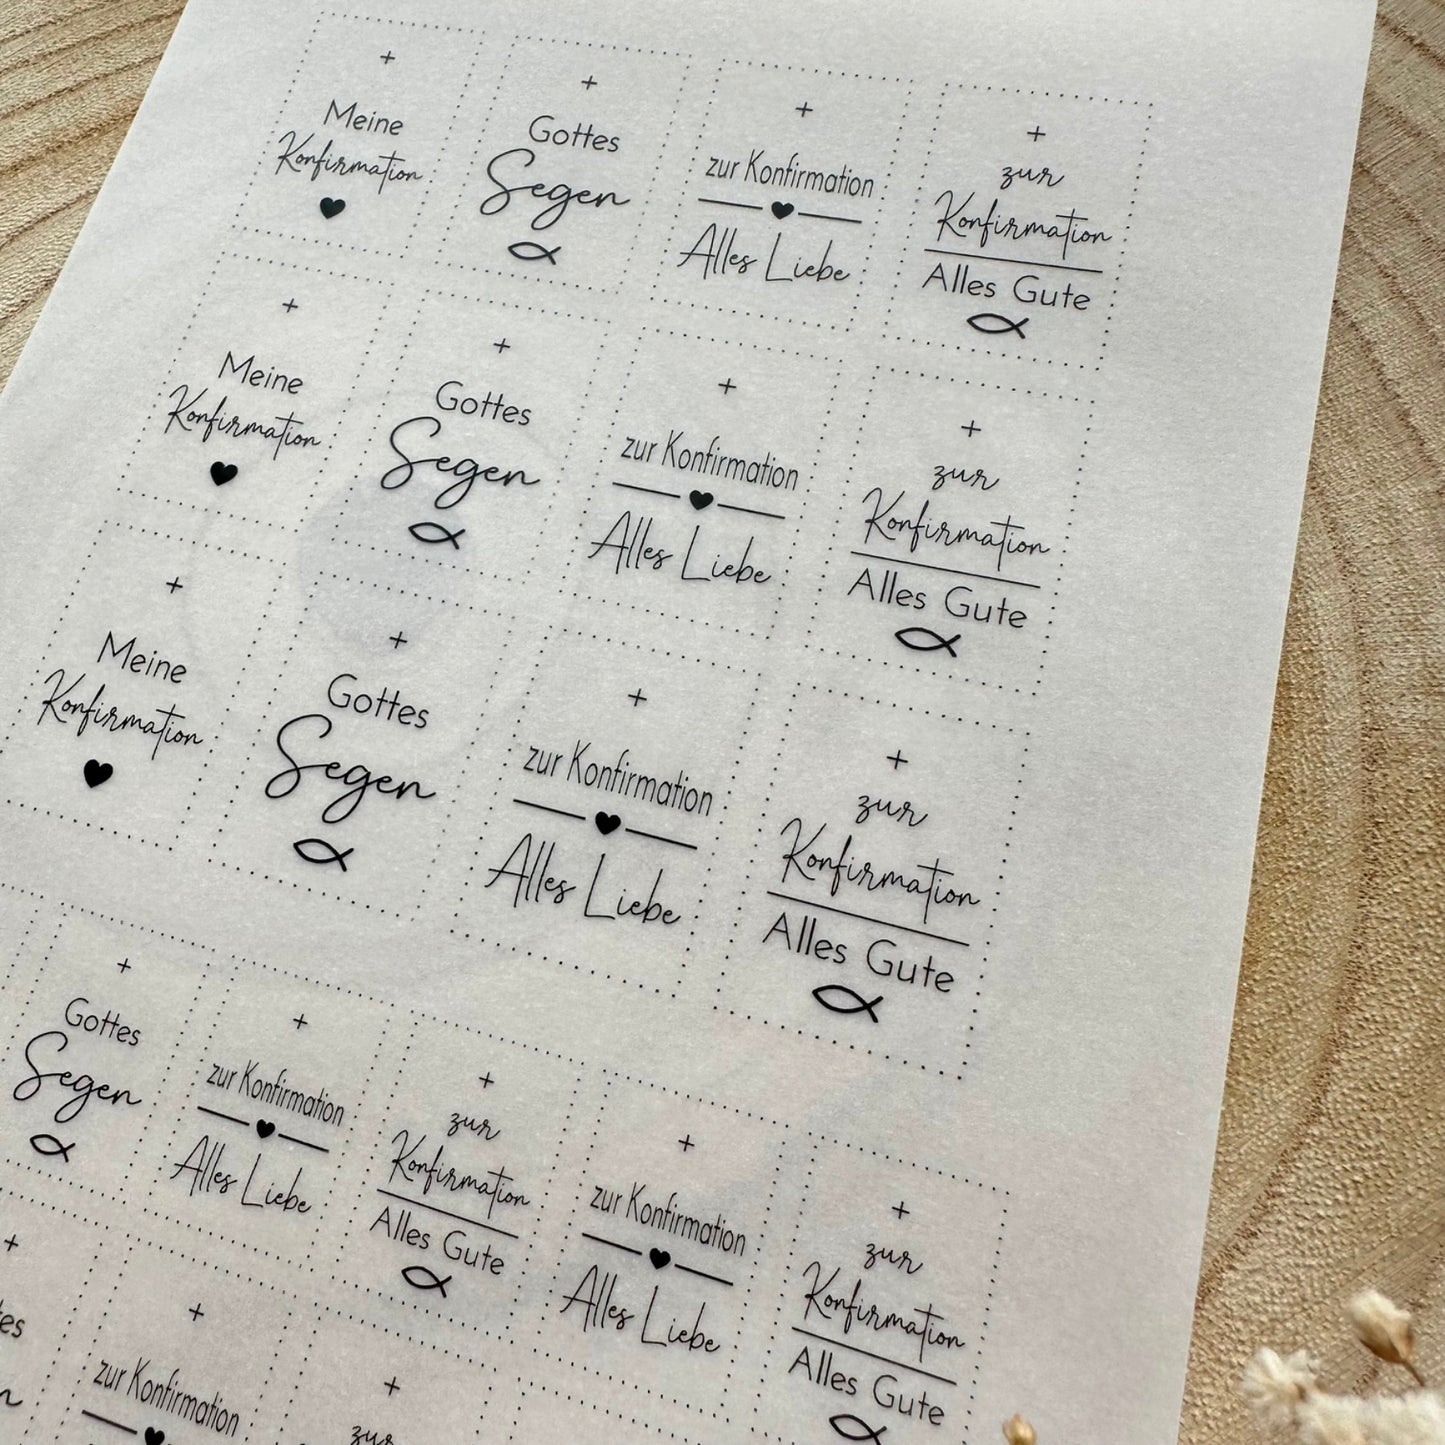 Meine
Konfirmation
Gottes
Segen
zur Konfirmation
Alles Liebe
zur
Konfirmation
Alles Gute
Meine
Konfirmation
Gottes
Segen
zur Konfirmation
Alles Liebe
zur
Konfirmation
Alles Gute
Meine
Konfirmation
Gottes
Segen
zur Konfirmation
Alles Liebe
zur
Konfirmation
Alles Gute
Gottes
Segen
zur Konfirmation
Alles Liebe
zur
Konfirmation
Alles Gute
zur Konfirmation
Alles Liebe
zur
Konfirmation
Alles Gute
zur Konfirmation
zur